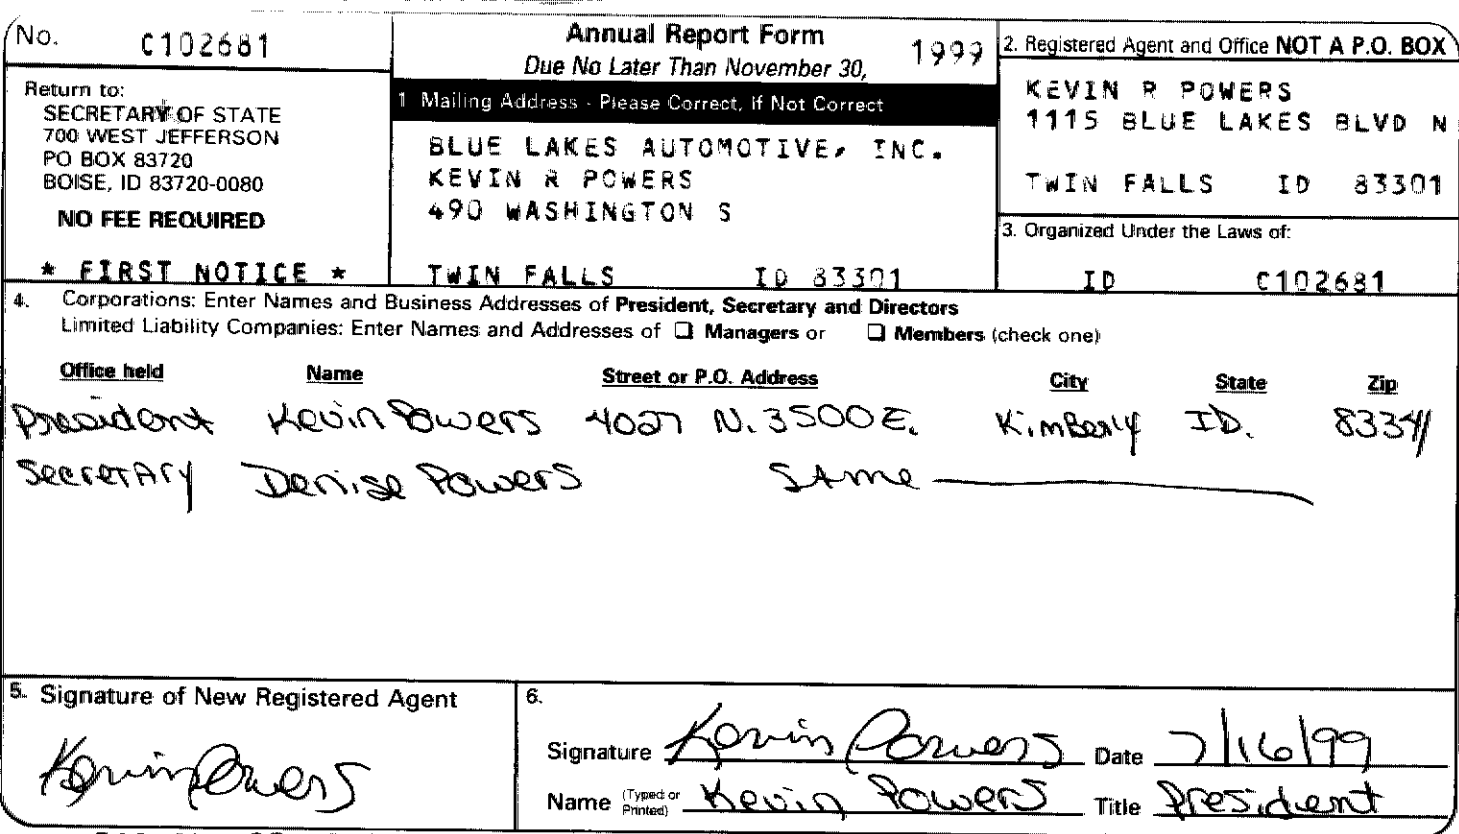 No. C102681
Return to:
SECRETARY OF STATE
700 WEST JEFFERSON
PO BOX 83720
BOISE, ID 83720-0080
NO FEE REQUIRED
* FIRST NOTICE *
Annual Report Form 1999
Due No Later Than November 30,
1 Mailing Address - Please Correct, If Not Correct
BLUE LAKES AUTOMOTIVE, INC.
KEVIN R POWERS
490 WASHINGTON S
TWIN FALLS ID 83301
2. Registered Agent and Office NOT A P.O. BOX
KEVIN R POWERS
1115 BLUE LAKES BLVD N
TWIN FALLS ID 83301
3. Organized Under the Laws of:
ID C102681
4. Corporations: Enter Names and Business Addresses of President, Secretary and Directors
Limited Liability Companies: Enter Names and Addresses of ☐ Managers or ☐ Members (check one)
Office held Name Street or P.O. Address City State Zip
President Kevin Powers 4027 N. 3500 E. Kimberly ID. 83341
Secretary Denise Powers Same
5. Signature of New Registered Agent
Kevin Powers
6.
Signature Kevin Powers Date 7/16/99
Name (Typed or Printed) Kevin Powers Title President